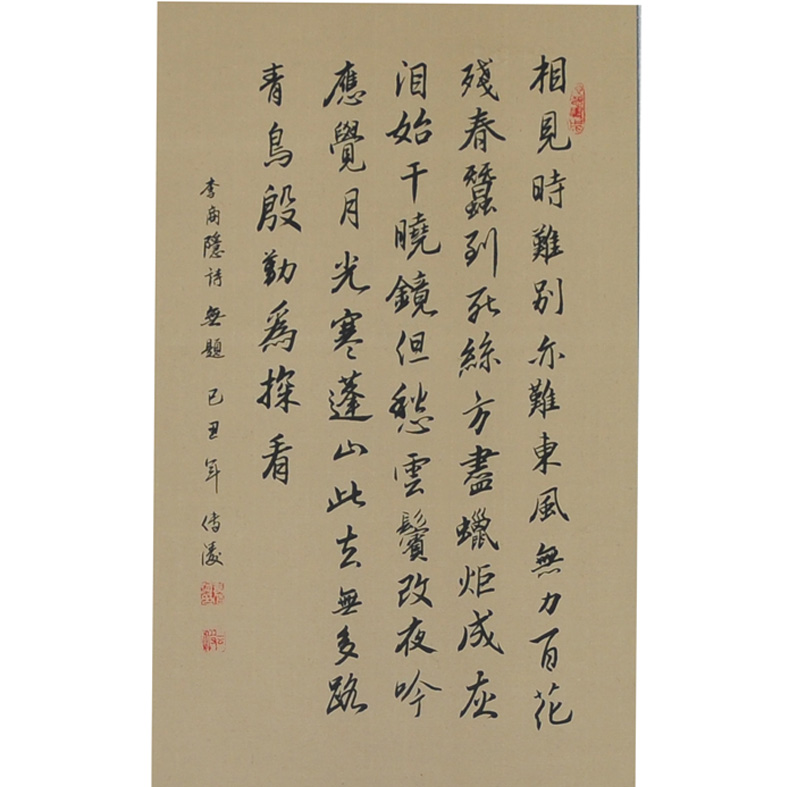 相見時難別亦難東風無力百花
殘春蠶到死絲方盡蠟炬成灰
泪始干曉鏡但愁雲鬢改夜吟
應覺月光寒蓬山此去無多路
青鳥殷勤爲探看
李商隱詩無題 己丑年